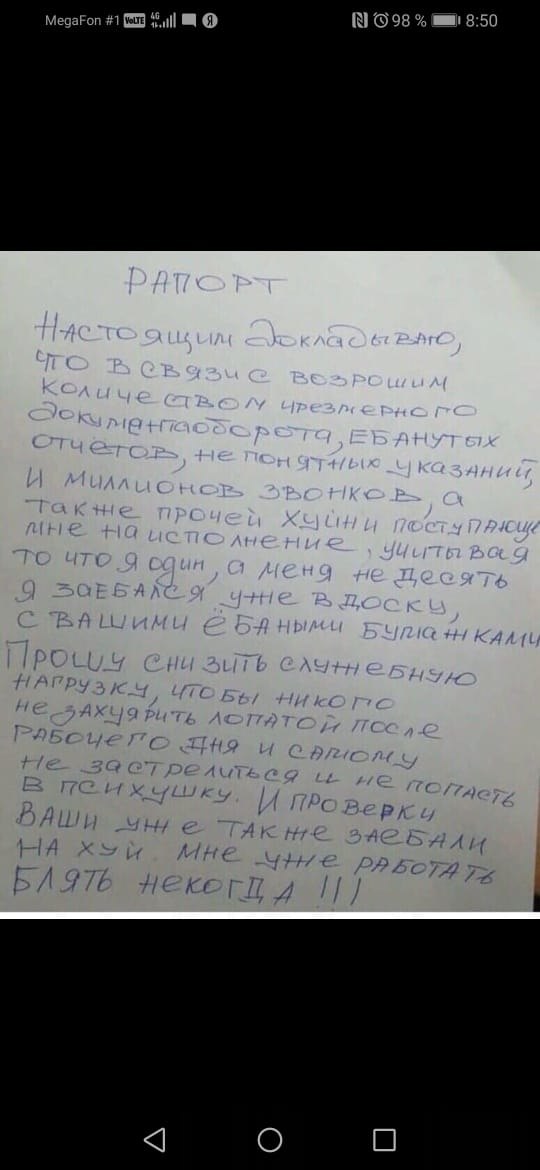 MegaFon #1 VoLTE 4G Я 98 % 8:50
РАПОРТ
Настоящим докладываю,
что в связи с возрошим
количеством чрезмерного
документаоборота, ебанутых
отчётов, не понятных указаний,
и миллионов звонков, а
также прочей хуйни поступающе
мне на исполнение, учитывая
то что я один, а меня не десять
я заебался уже в доску,
с вашими ёбаными бумажками
Прошу снизить служебную
нагрузку, чтобы никого
не захуярить лопатой после
рабочего дня и самому
не застрелиться и не попасть
в психушку. И проверки
ваши уже также заебали
на хуй. мне уже работать
блять некогда !!!